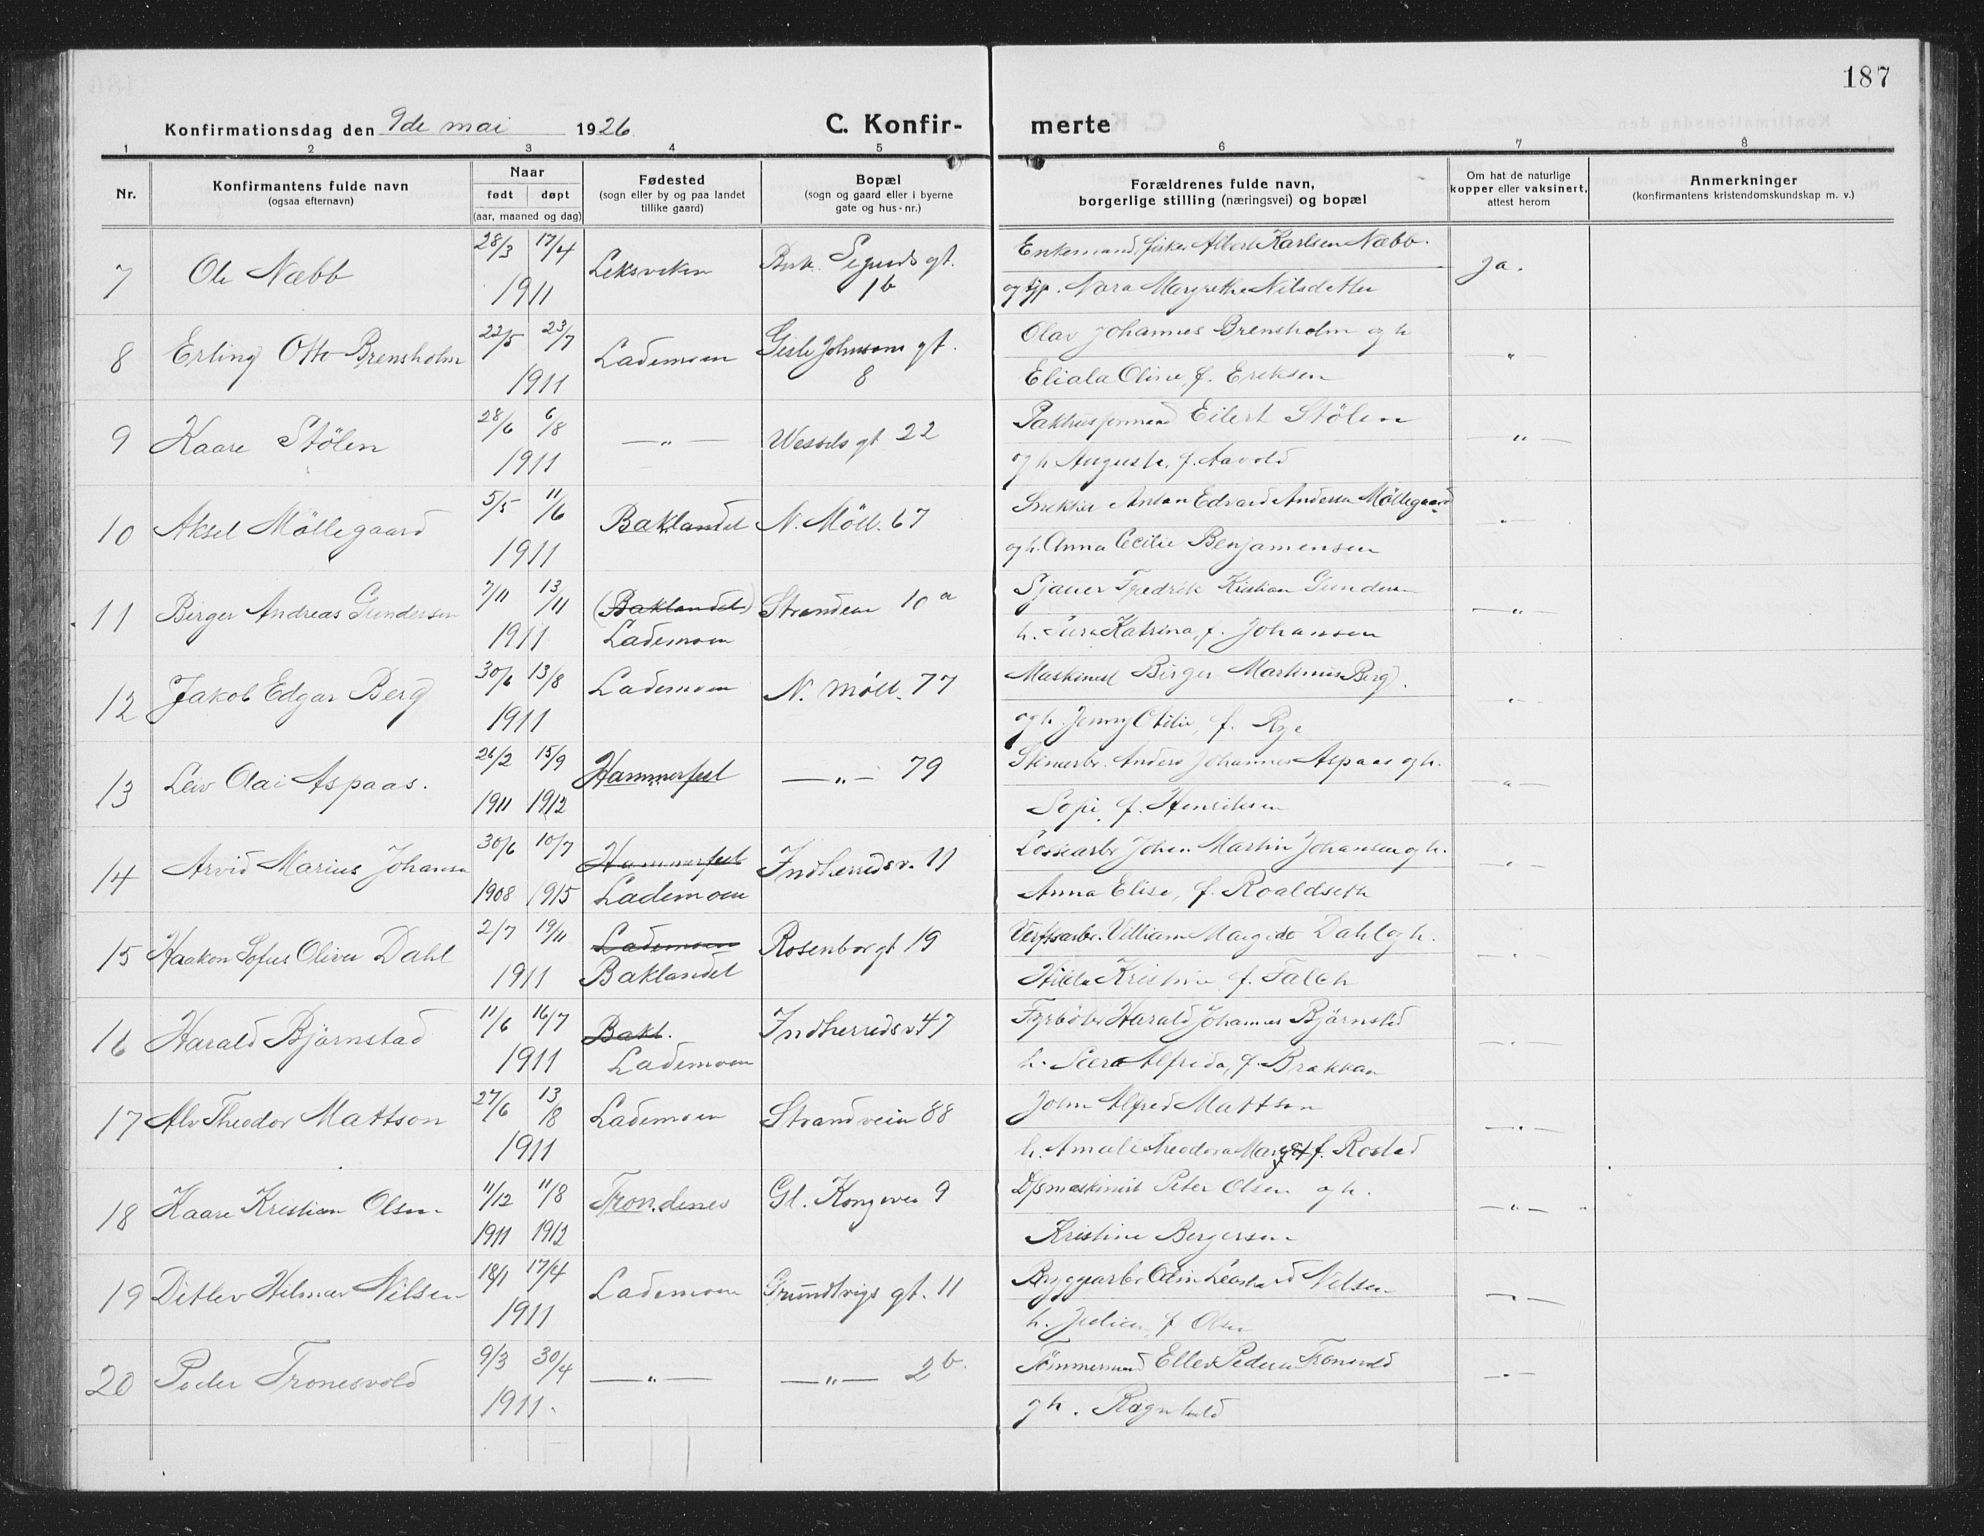 187
Konfirmationsdag den 9de mai 1926 C. Konfir- merte
1 2 3 4 5 6 7 8
Nr. Konfirmantens fulde navn (ogsaa efternavn) Naar født døpt (aar, maaned og dag) Fødested (sogn eller by og paa landet tillike gaard) Bopæl (sogn og gaard eller i byerne gate og hus-nr.) Forældrenes fulde navn, borgerlige stilling (næringsvei) og bopæl Om hat de naturlige kopper eller vaksinert, attest herom Anmerkninger (konfirmantens kristendomskundskap m. v.)
28/3 17/4 Enkemand, Albert Karlsen Næbb.
7 Ole Næbb Leksviken Sigurds gt. ja.
1911 1b og Nora Margrethe Nilsdatter
22/5 23/7 Olav Johannes Brensholm og h
8 Erling Otto Brensholm Lademoen Gisle Johnsons gt. "
1911 8 Eliala Oline, f. Eriksen
28/6 6/8 Eilert Stölen
9 Kaare Stölen —"— Wessels gt 22 —"—
1911 og h. f. Aavold
5/5 11/6 Snekker Anton Edvard Andersen Möllegaard
10 Aksel Möllegaard Baklandet N. Möll. 67 "
1911 og h. Anna Cecilie Benjamensen
7/11 13/11 Sjauer Fredrik Kristian Gundersen
11 Birger Andreas Gundersen (Baklandet) Strandvn 10a —"—
1911 Lademoen h. Katrina, f. Johansen
30/6 13/8 Maskinist Birger Martinus Berg.
12 Jakob Edgar Berg Lademoen N. Möll. 77 —"—
1911 og h. Jenny Otilie, f. Rye
26/2 15/9 Stenarb. Anders Johannes Aspaas og h.
13 Leiv Olai Aspaas. Hammerfest —"— 79 —"—
1911 1912 Sofie, f. Henriksen
30/6 10/7 Lossearb Johan Martin Johansen og h.
14 Arvid Marius Johansen Hammerfest Indherredsv. 11 —"—
1908 1915 Lademoen Anna Elise, f. Roaldseth
2/7 19/11 Verftsarb. Villiam Dahl og h.
15 Haakon Sofus Oliver Dahl Lademoen Rosenborgt 19 —"—
1911 Baklandet Hilda Kristine, f. Falch
11/6 16/7 Fyrböter Harald Johannes Björnstad
16 Harald Björnstad Bakl. Indherredsv 47 —"—
1911 Lademoen h. Alfreda, f. Brækkan
27/6 13/8 John Alfred Mattson
17 Alv Theodor Mattson Lademoen Strandveien 88 —"—
1911 h. Amalie Theodora f. Rostad
11/12 11/8 D/smaskinist Peter Olsen og h.
18 Kaare Kristian Olsen Trondenes Gl. Kongevei 9 —"—
1911 1912 Kristine Bergersen
18/1 17/4 Bryggearb Odin Nilsen
19 Ditlev Hilmar Nilsen Lademoen Grundtvigs gt. 11 —"—
1911 h. f. Olsen
9/3 30/4 Tömmermand Pedersen Tronesvold
20 Peder Tronesvold —"— —"— 2b. —"—
1911. og h. Ragnhild